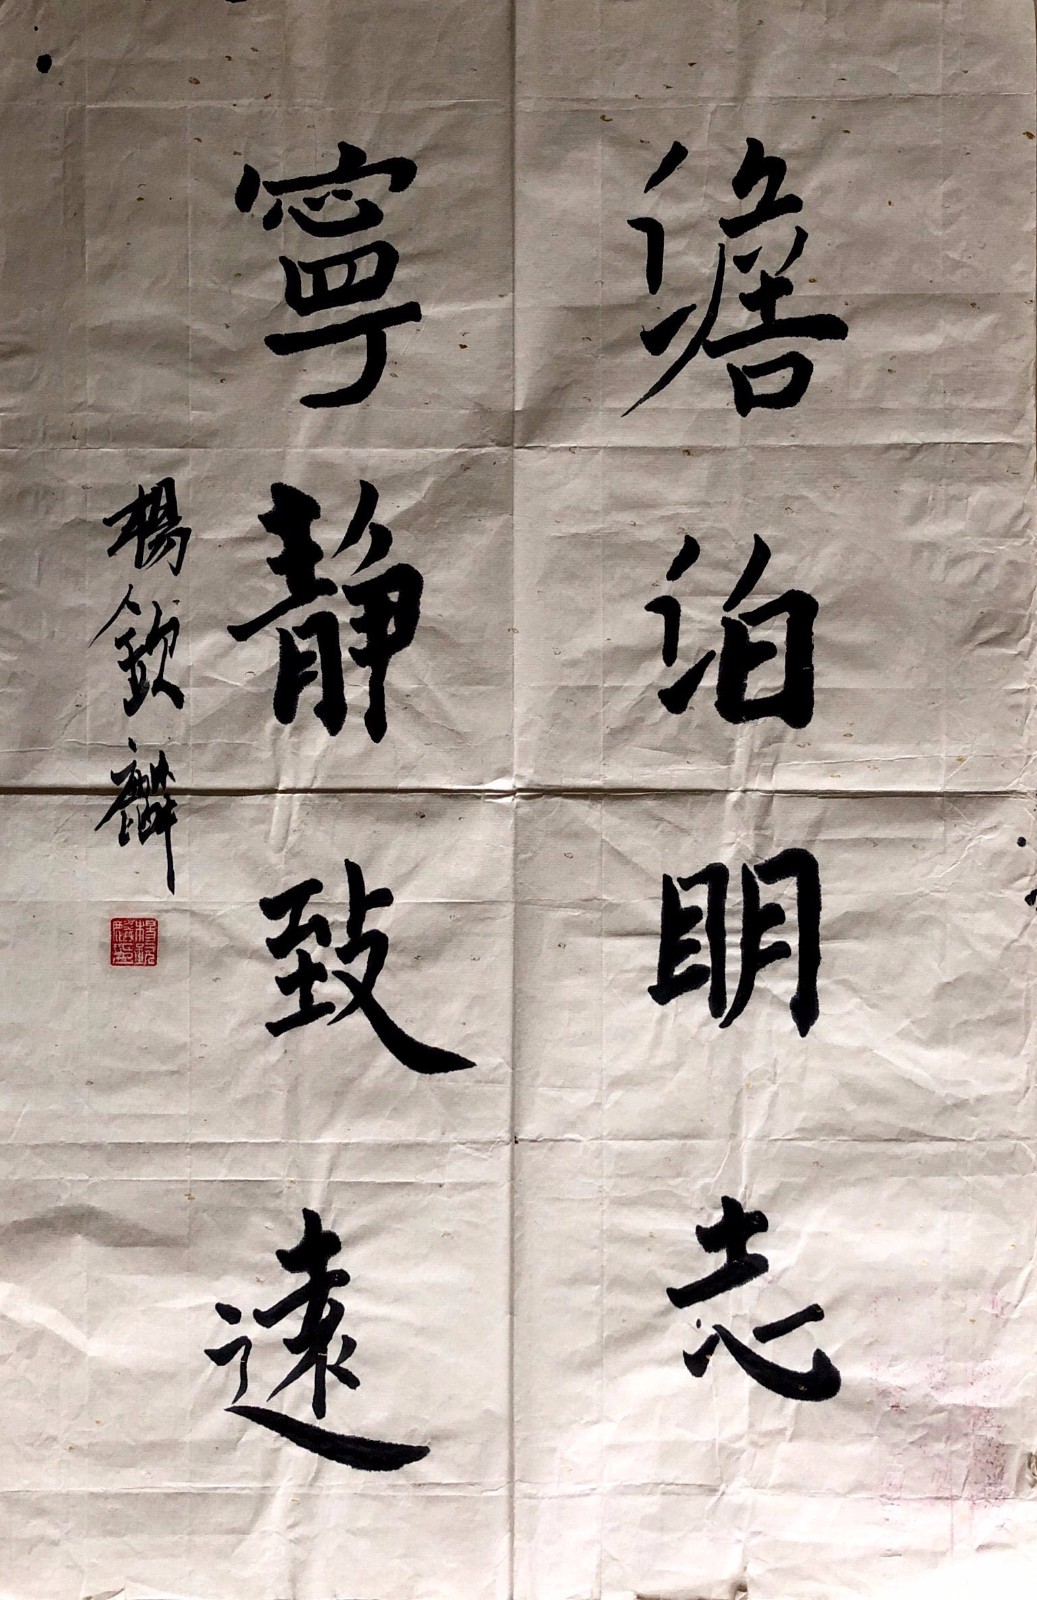 澹泊明志
寧靜致遠
楊欽麟